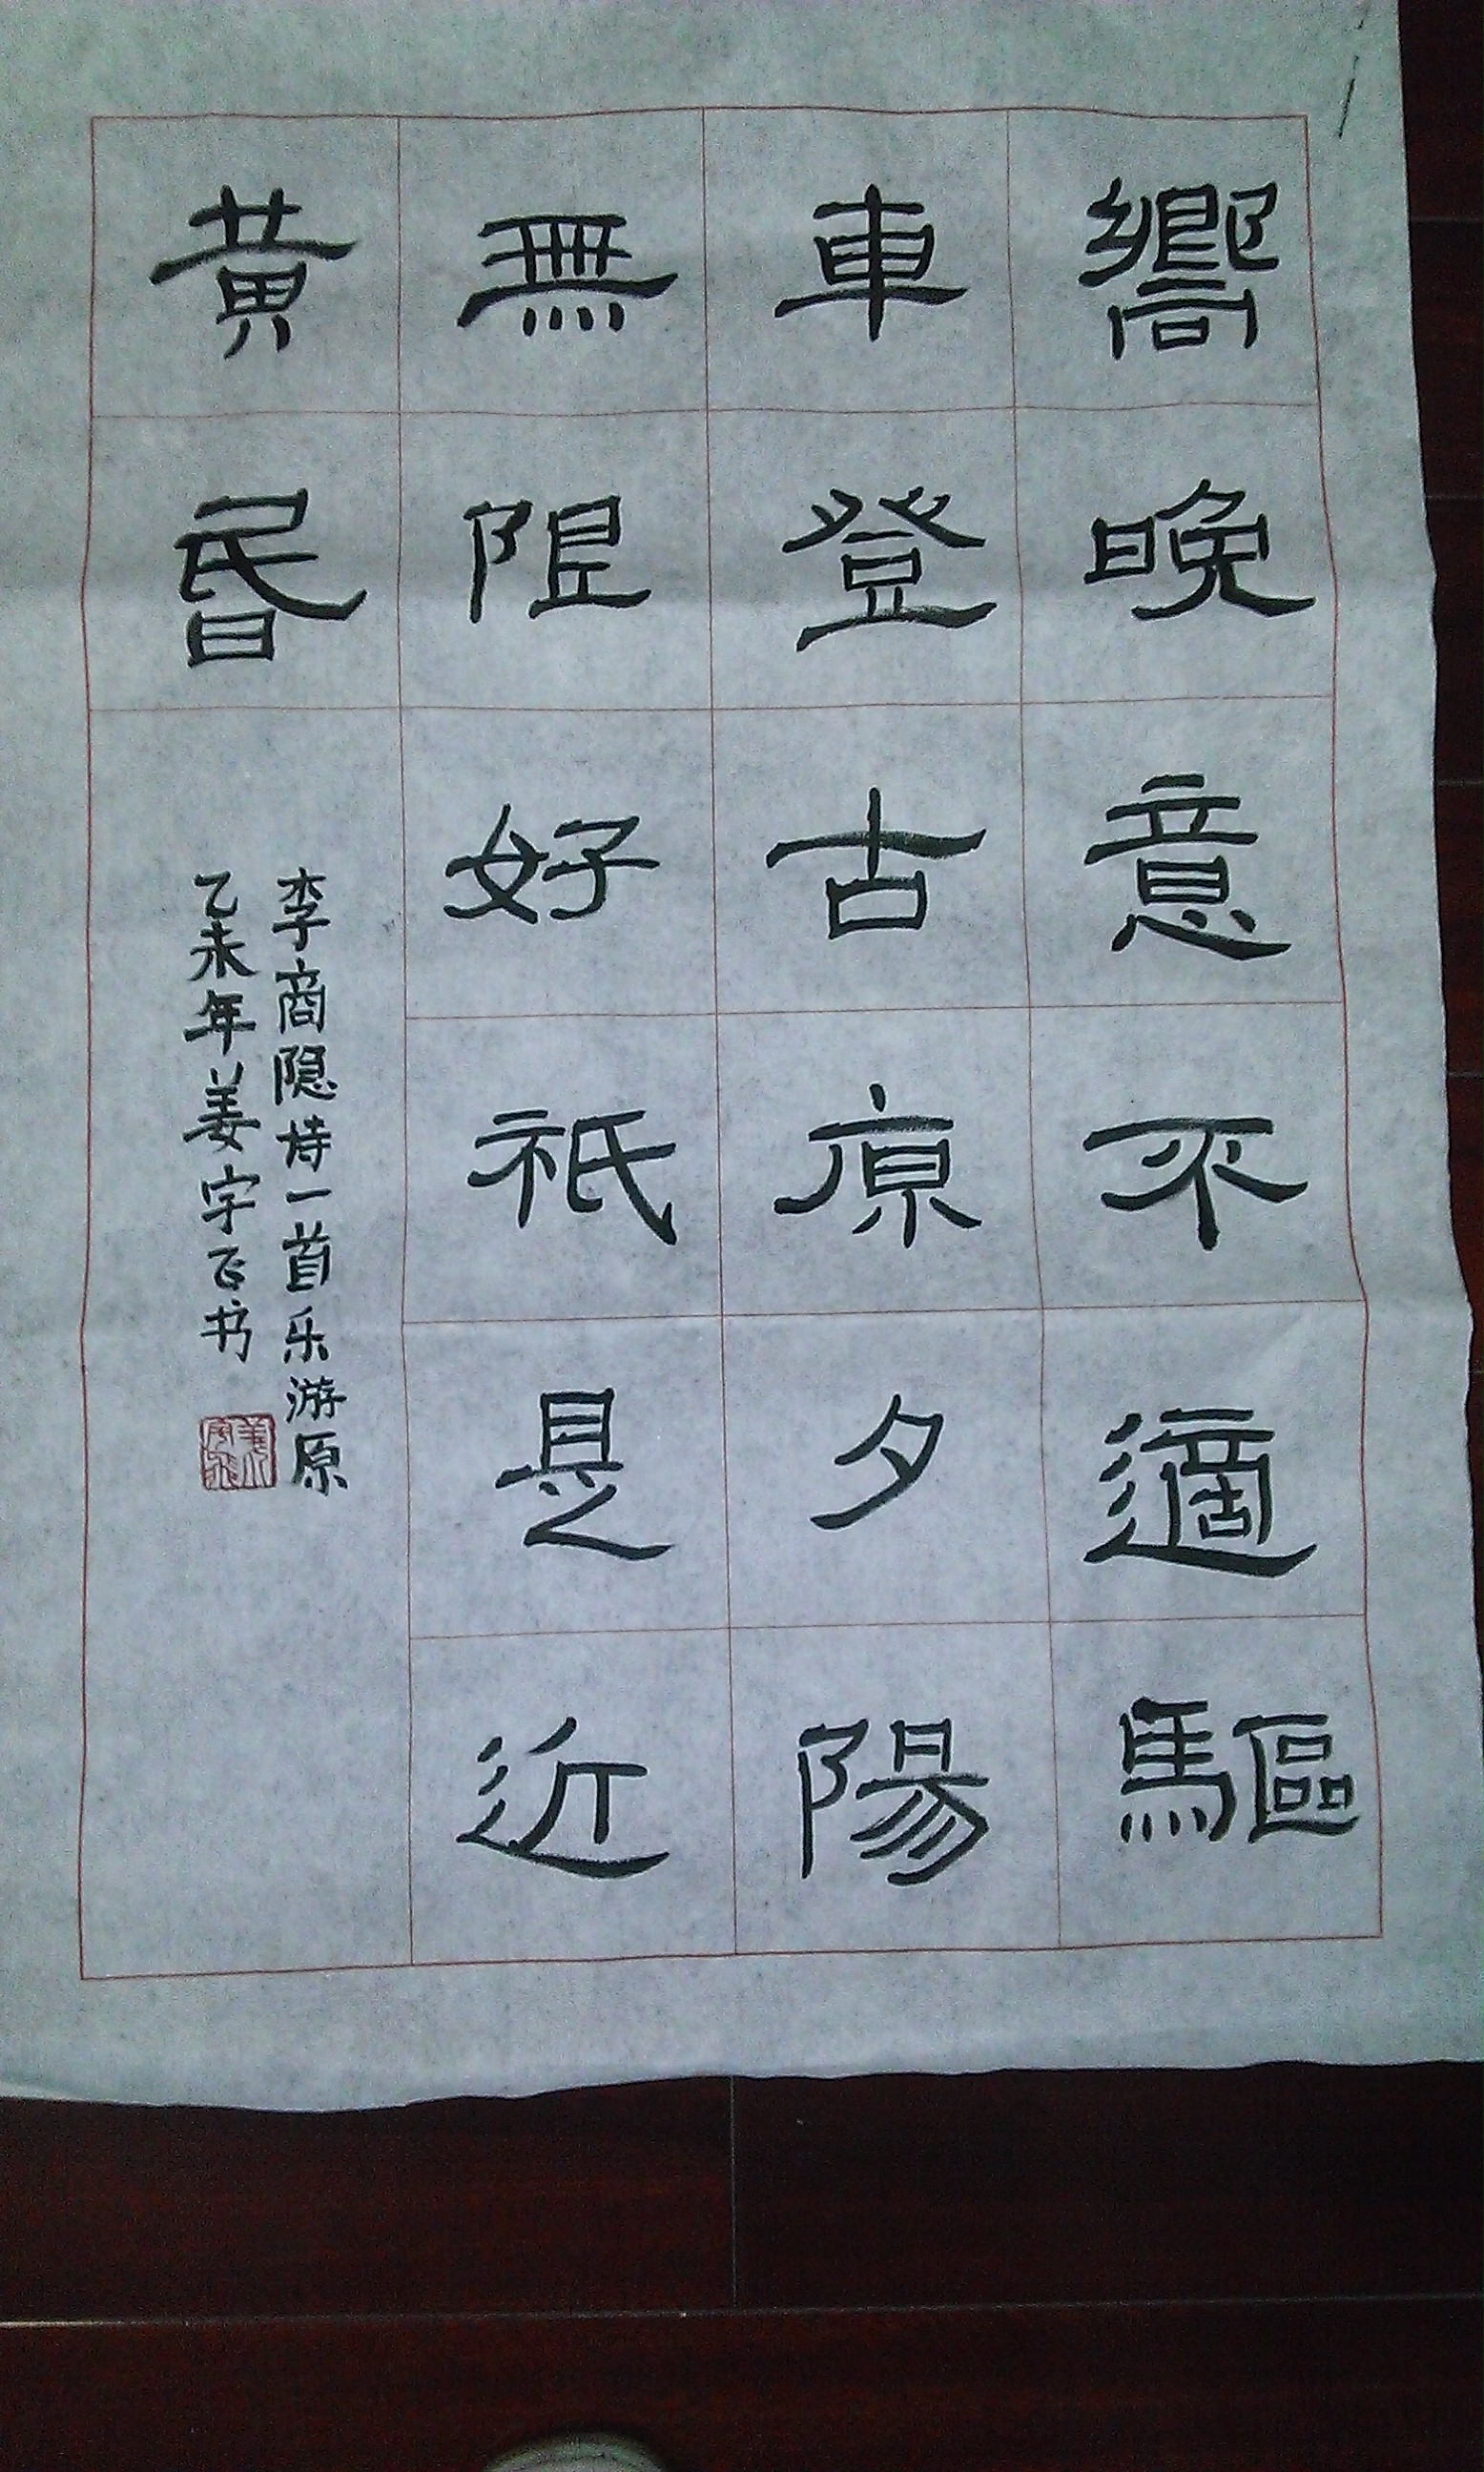 嚮晚意不適驅
車登古原夕陽
無限好祇是近
黄昏
李商隐诗一首乐游原
乙未年姜宇飞书
姜宇飛